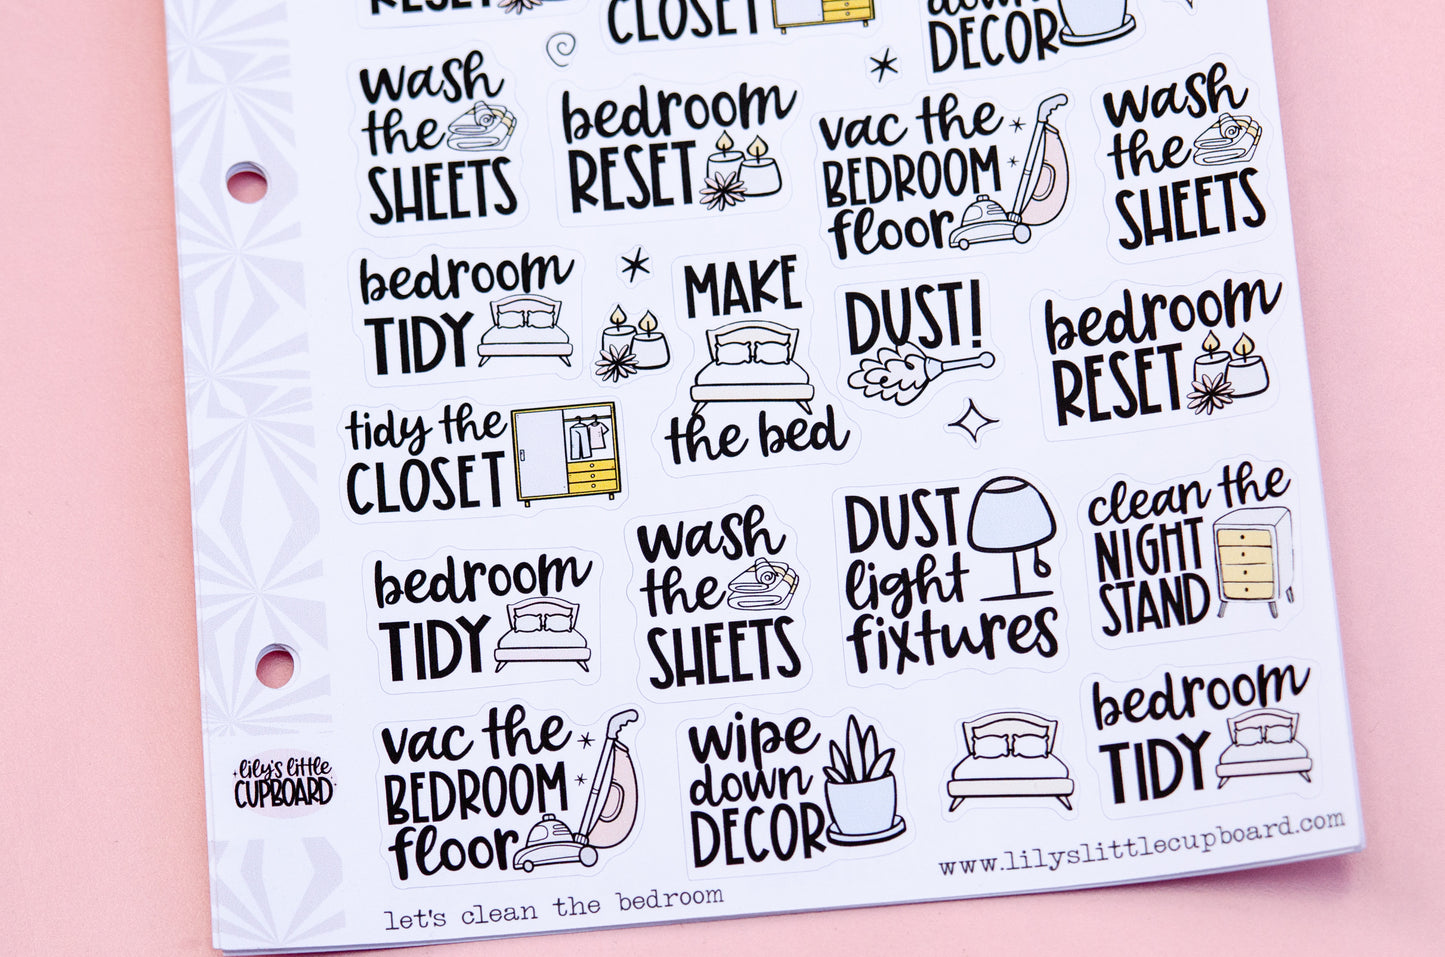 RESET
CLOSET
down
DECOR
wash
the
SHEETS
bedroom
RESET
vac the
BEDROOM
floor
wash
the
SHEETS
bedroom
TIDY
MAKE
the bed
DUST!
bedroom
RESET
tidy the
CLOSET
wash
the
SHEETS
DUST
light
fixtures
clean the
NIGHT
STAND
bedroom
TIDY
vac the
BEDROOM
floor
wipe
down
DECOR
bedroom
TIDY
lily's little
CUPBOARD
let's clean the bedroom
www.lilyslittlecupboard.com